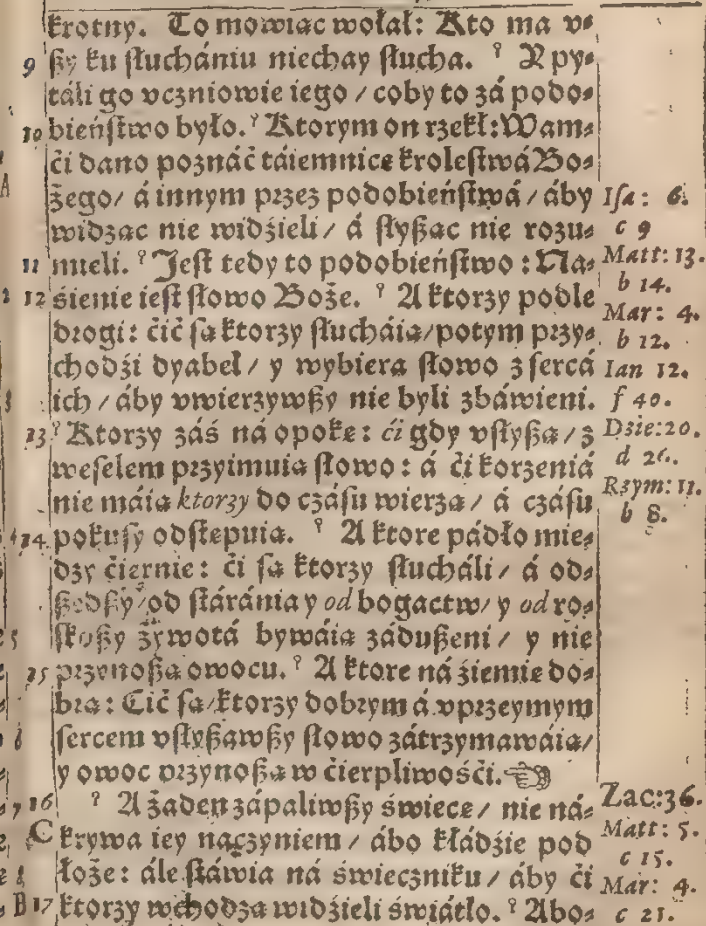 krotny. To mowiąc wołał: Kto ma v⸗
9 ßy ku słuchániu niechay słucha. ⸮ Y py⸗
táli go vczniowie iego / coby to zá podo⸗
10 bieństwo było. ⸮ Ktorym on rzekł: Wam⸗
ći dano poznáć táiemnice krolestwá Bo⸗
żego / á innym przez podobieństwá / áby
widząc nie widzieli / á słyßąc nie rozu⸗
11 mieli. ⸮ Jest tedy to podobieństwo: Na⸗
12 śienie iest słowo Boże. ⸮ A ktorzy podle
drogi: ćić są ktorzy słucháią / potym przy⸗
chodźi dyabeł / y wybiera słowo z sercá
ich / áby vwierzywßy nie byli zbáwieni.
13 ⸮ Ktorzy záś ná opoke: ći gdy vsłyßą / z
weselem przyimuią słowo: á ći korzeniá
nie máią ktorzy do czásu wierzą / á czásu
14 pokusy odstępuią. ⸮ A ktore pádło mie⸗
dzy ćiernie: ći są ktorzy słucháli / á od⸗
ßedßy / od stáránia y od bogactw / y od ro⸗
skoßy żywotá bywáią zádußeni / y nie
15 przynoßą owocu. ⸮ A ktore ná źiemie do⸗
brą: Ćić są / ktorzy dobrym á vprzeymym
sercem vsłyßawßy słowo zátrzymawáią /
y owoc przynoßą w ćierpliwośći. ☜
16 ⸮ A żaden zápaliwßy świece / nie ná⸗
C krywa iey naczyniem / ábo kłádźie pod
łoże: ále stáwia ná świeczniku / áby ći
B 17 ktorzy wchodzą widzieli świátło. ⸮ Abo⸗
Isa: 6.
c 9
Matt: 13.
b 14.
Mar: 4.
b 12.
Ian 12.
f 40.
Dzie: 20.
d 26.
Rzym: 11.
b 8.
Zac: 36.
Matt: 5.
c 15.
Mar: 4.
c 21.